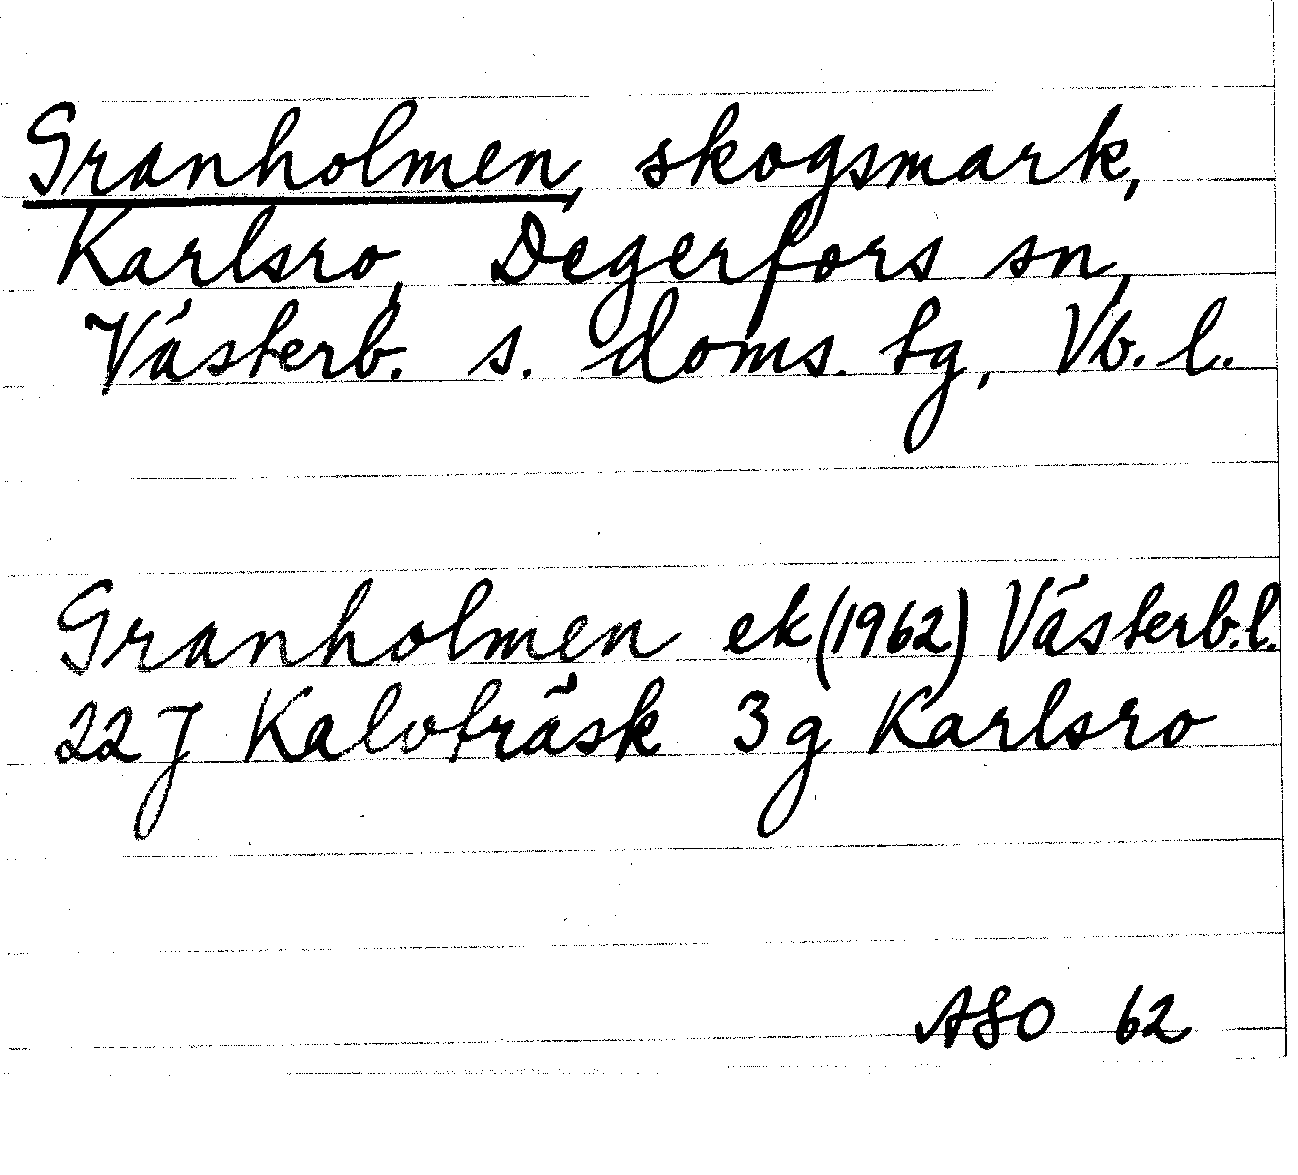 Granholmen, skogsmark,
Karlsro, Degerfors sn,
Västerb. s. doms. tg, Vb. l.
Granholmen ek (1962) Västerb.l.
22 J Kalvträsk 3g Karlsro
ASO 62